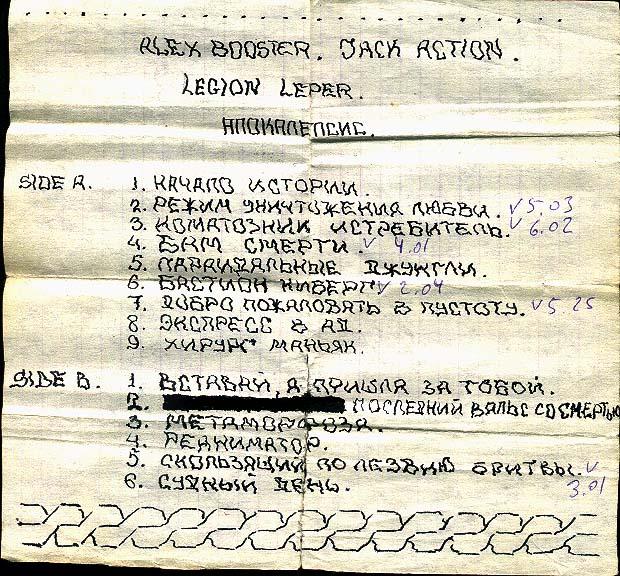 ALEX BOOSTER. JACK ACTION.
LEGION LEPER.
АПОКАЛЕПСИС.
SIDE A. 1. НАЧАЛО ИСТОРИИ.
2. РЕЖИМ УНИЧТОЖЕНИЯ ЛЮБВИ. V 5.03
3. КОМАТОЗНИК ИСТРЕБИТЕЛЬ. V 6.02
4. БКМ СМЕРТИ. V 4.01
5. ПАРАИДАЛЬНЫЕ ДЖУНГЛИ.
6. БАСТИОН КИБЕРГ V 2.04
7. ДОБРО ПОЖАЛОВАТЬ В ПУСТОТУ. V 5.25
8. ЭКСПРЕСС В АД.
9. ХИРУРГ МАНЬЯК.
SIDE B. 1. ВСТАВАЙ, Я ПРИШЛА ЗА ТОБОЙ.
2. ПОСЛЕДНИЙ ВАЛЬС СО СМЕРТЬЮ
3. МЕТАМОРФОЗА.
4. РЕАНИМАТОР.
5. СКОЛЬЗЯЩИЙ ПО ЛЕЗВИЮ БРИТВЫ. V
3.01
6. СУДНЫЙ ДЕНЬ.